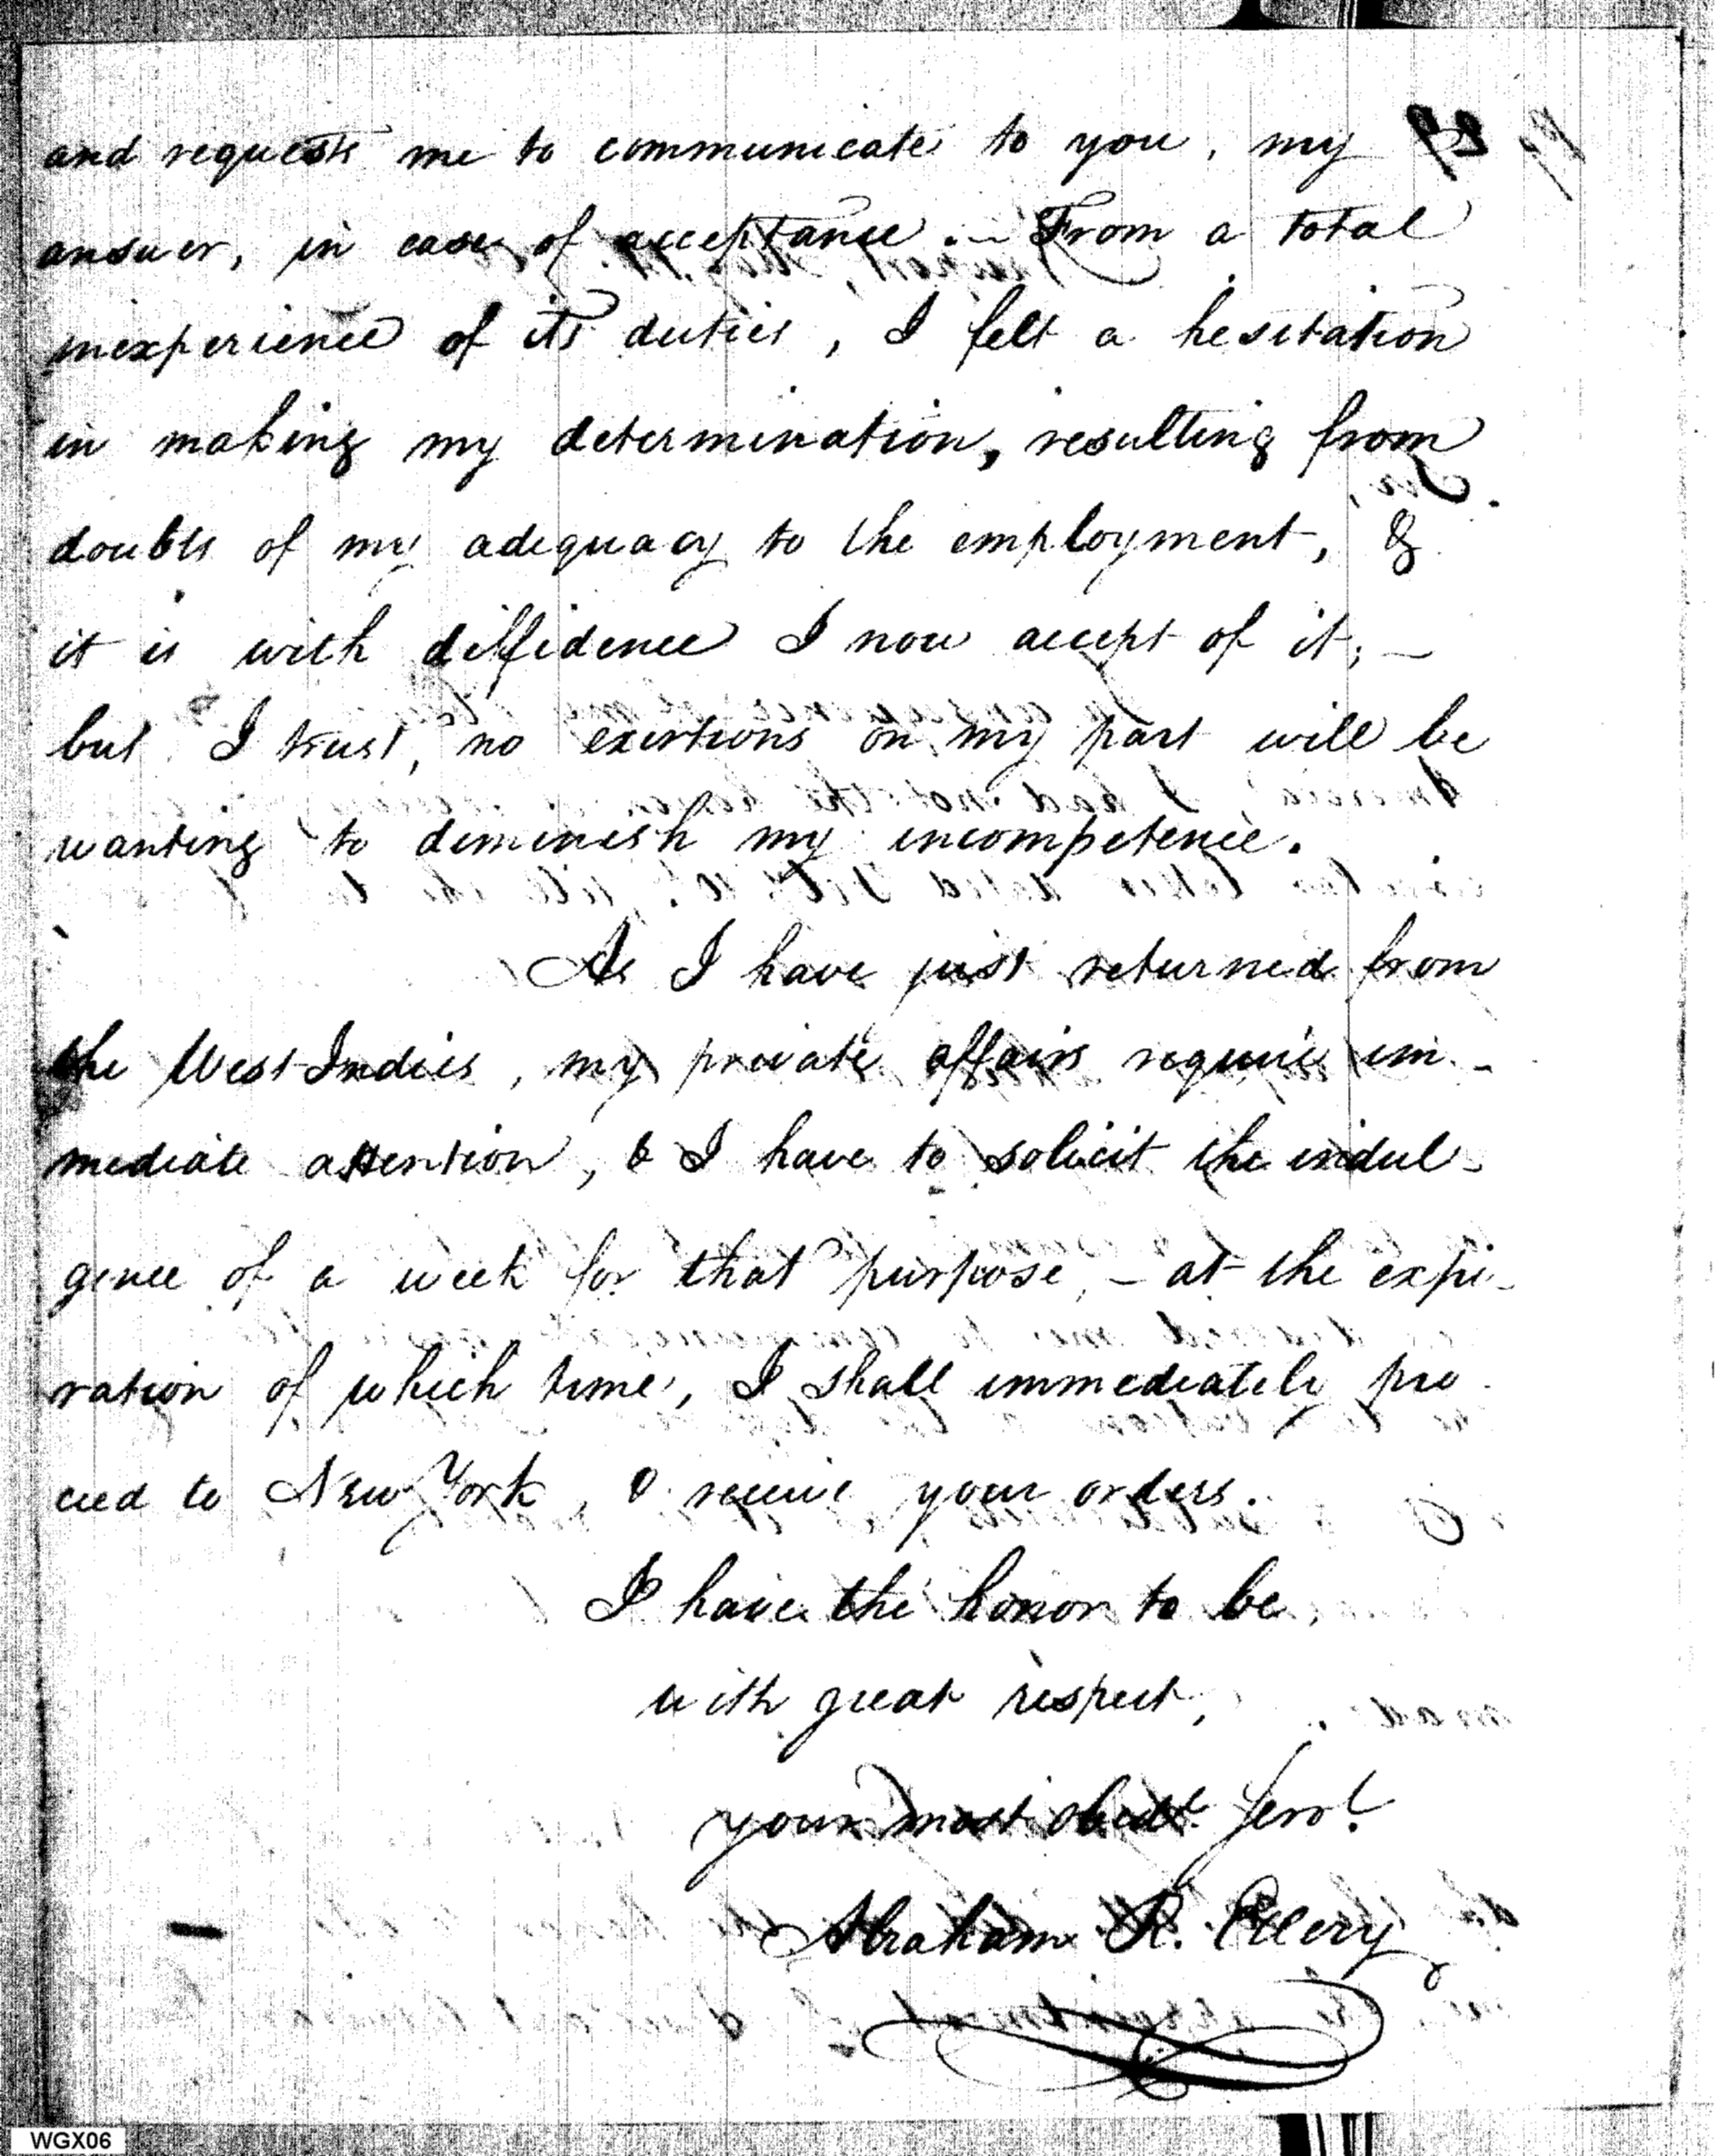 and requests me to communicate to you, my
answer, in case of acceptance. — From a total
inexperience of its duties, I felt a hesitation
in making my determination, resulting from
doubts of my adequacy to the employment, &
it is with diffidence I now accept of it; —
but I trust, no exertions on my part will be
wanting to diminish my incompetence.
As I have just returned from
the West-Indies, my private affairs require im-
mediate attention, & I have to solicit the indul-
gence of a week for that purpose, — at the expi-
ration of which time, I shall immediately pro
ceed to New York, & receive your orders.
I have the honor to be,
with great respect,
your most obedt. Servt.
Abraham R. Ellery
WGX06